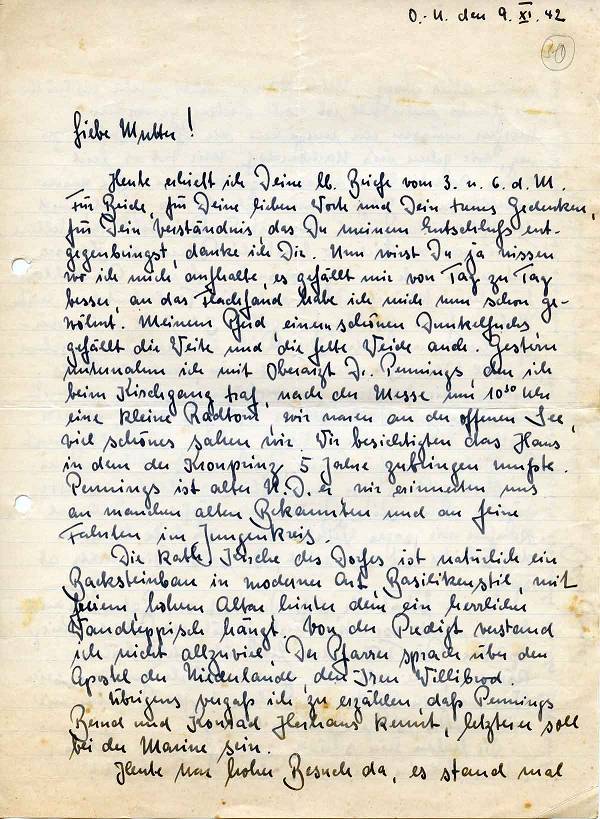 O.-U. den 9. XI. 42
30
Liebe Mutter!
Heute erhielt ich Deine lb. Briefe vom 3. u. 6. d. M.
Für Beide, für Deine lieben Worte und Dein treues Gedenken,
für Dein Verständnis, das Du meinem Entschluß ent-
gegenbringst, danke ich Dir. Nun wirst Du ja wissen
wo ich mich aufhalte, es gefällt mir von Tag zu Tag
besser, an das Flachland habe ich mich nun schon ge-
wöhnt. Meinem Pferd, einem schönen Dunkelfuchs
gefällt die Weite und die fette Weide auch. Gestern
unternahm ich mit Oberarzt Dr. Pennings, den ich
beim Kirchgang traf, nach der Messe um 10³⁰ Uhr
eine kleine Radtour, wir waren an der offenen See,
viel schönes sahen wir. Wir besichtigten das Haus
in dem der Kronprinz 5 Jahre zubringen mußte.
Pennings ist alter N.D. er wir erinnerten uns
an manchen alten Bekannten und an feine
Fahrten im Jungenkreis.
Die kath. Kirche des Dorfes ist natürlich ein
Backsteinbau in moderner Art, Basilikenstil, mit
freiem, hohem Altar hinter dem ein herrlicher
Wandteppisch hängt. Von der Predigt verstand
ich nicht allzuviel, Der Pfarrer sprach über den
Apostel der Niederlande, den Iren Willibrod.
Übrigens vergaß ich zu erzählen, daß Pennings
Bernd und Konrad Herhaus kennt, letzterer soll
bei der Marine sein.
Heute war hoher Besuch da, es stand mal